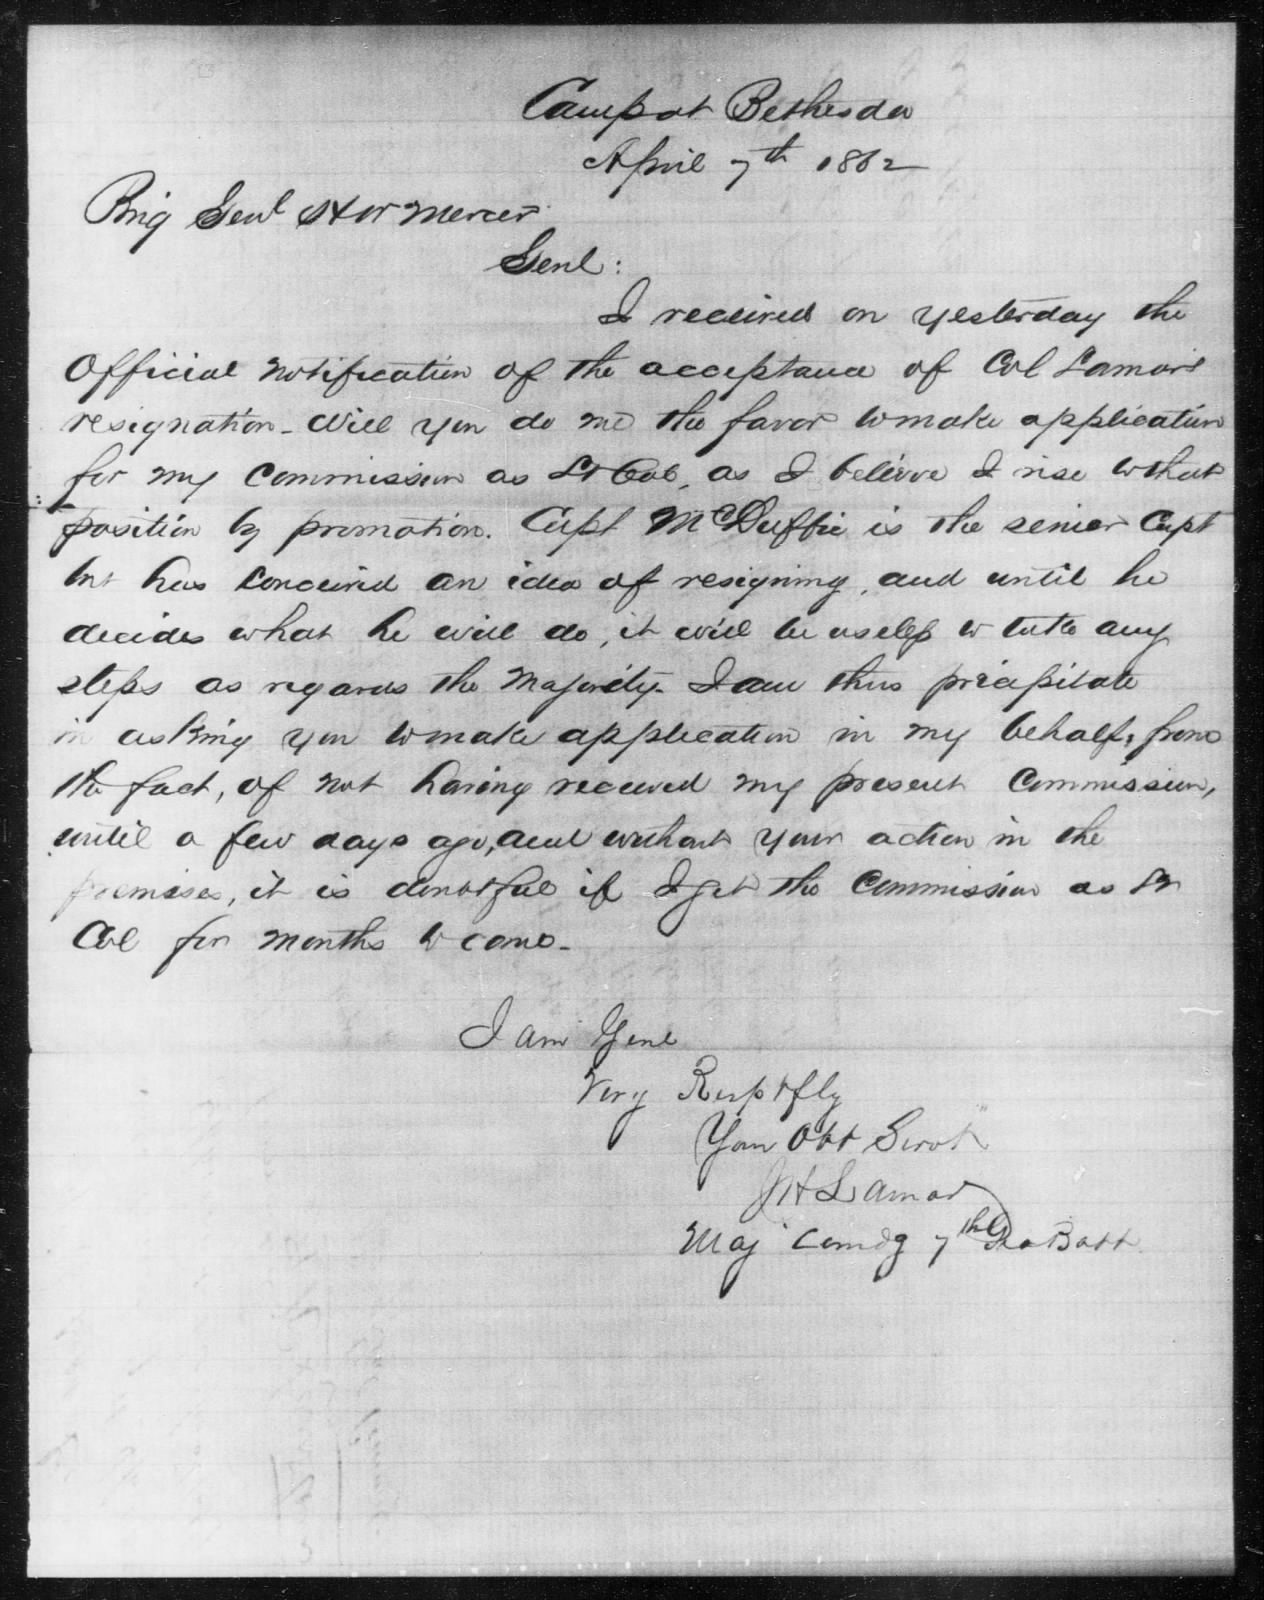 Camp at Bethesda
April 7th 1862
Brig Genl H W Mercer
Genl:
I received on yesterday the
Official notification of the acceptance of Col Lamar's
resignation. Will you do me the favor to make application
for my Commission as Lt Col, as I believe I rise to that
position by promotion. Capt McDuffie is the senior Capt
but has conceived an idea of resigning, and until he
decides what he will do, it will be useless to take any
steps as regards the Majority. I am thus precipitate
in asking you to make application in my behalf, from
the fact, of not having received my present Commission,
until a few days ago, and without your action in the
premises, it is doubtful if I get the Commission as Lt
Col for months to come.
I am Genl
Very Respctfly
Your Obt Servt
J H Lamar
Maj Comdg 7th Ga Batt